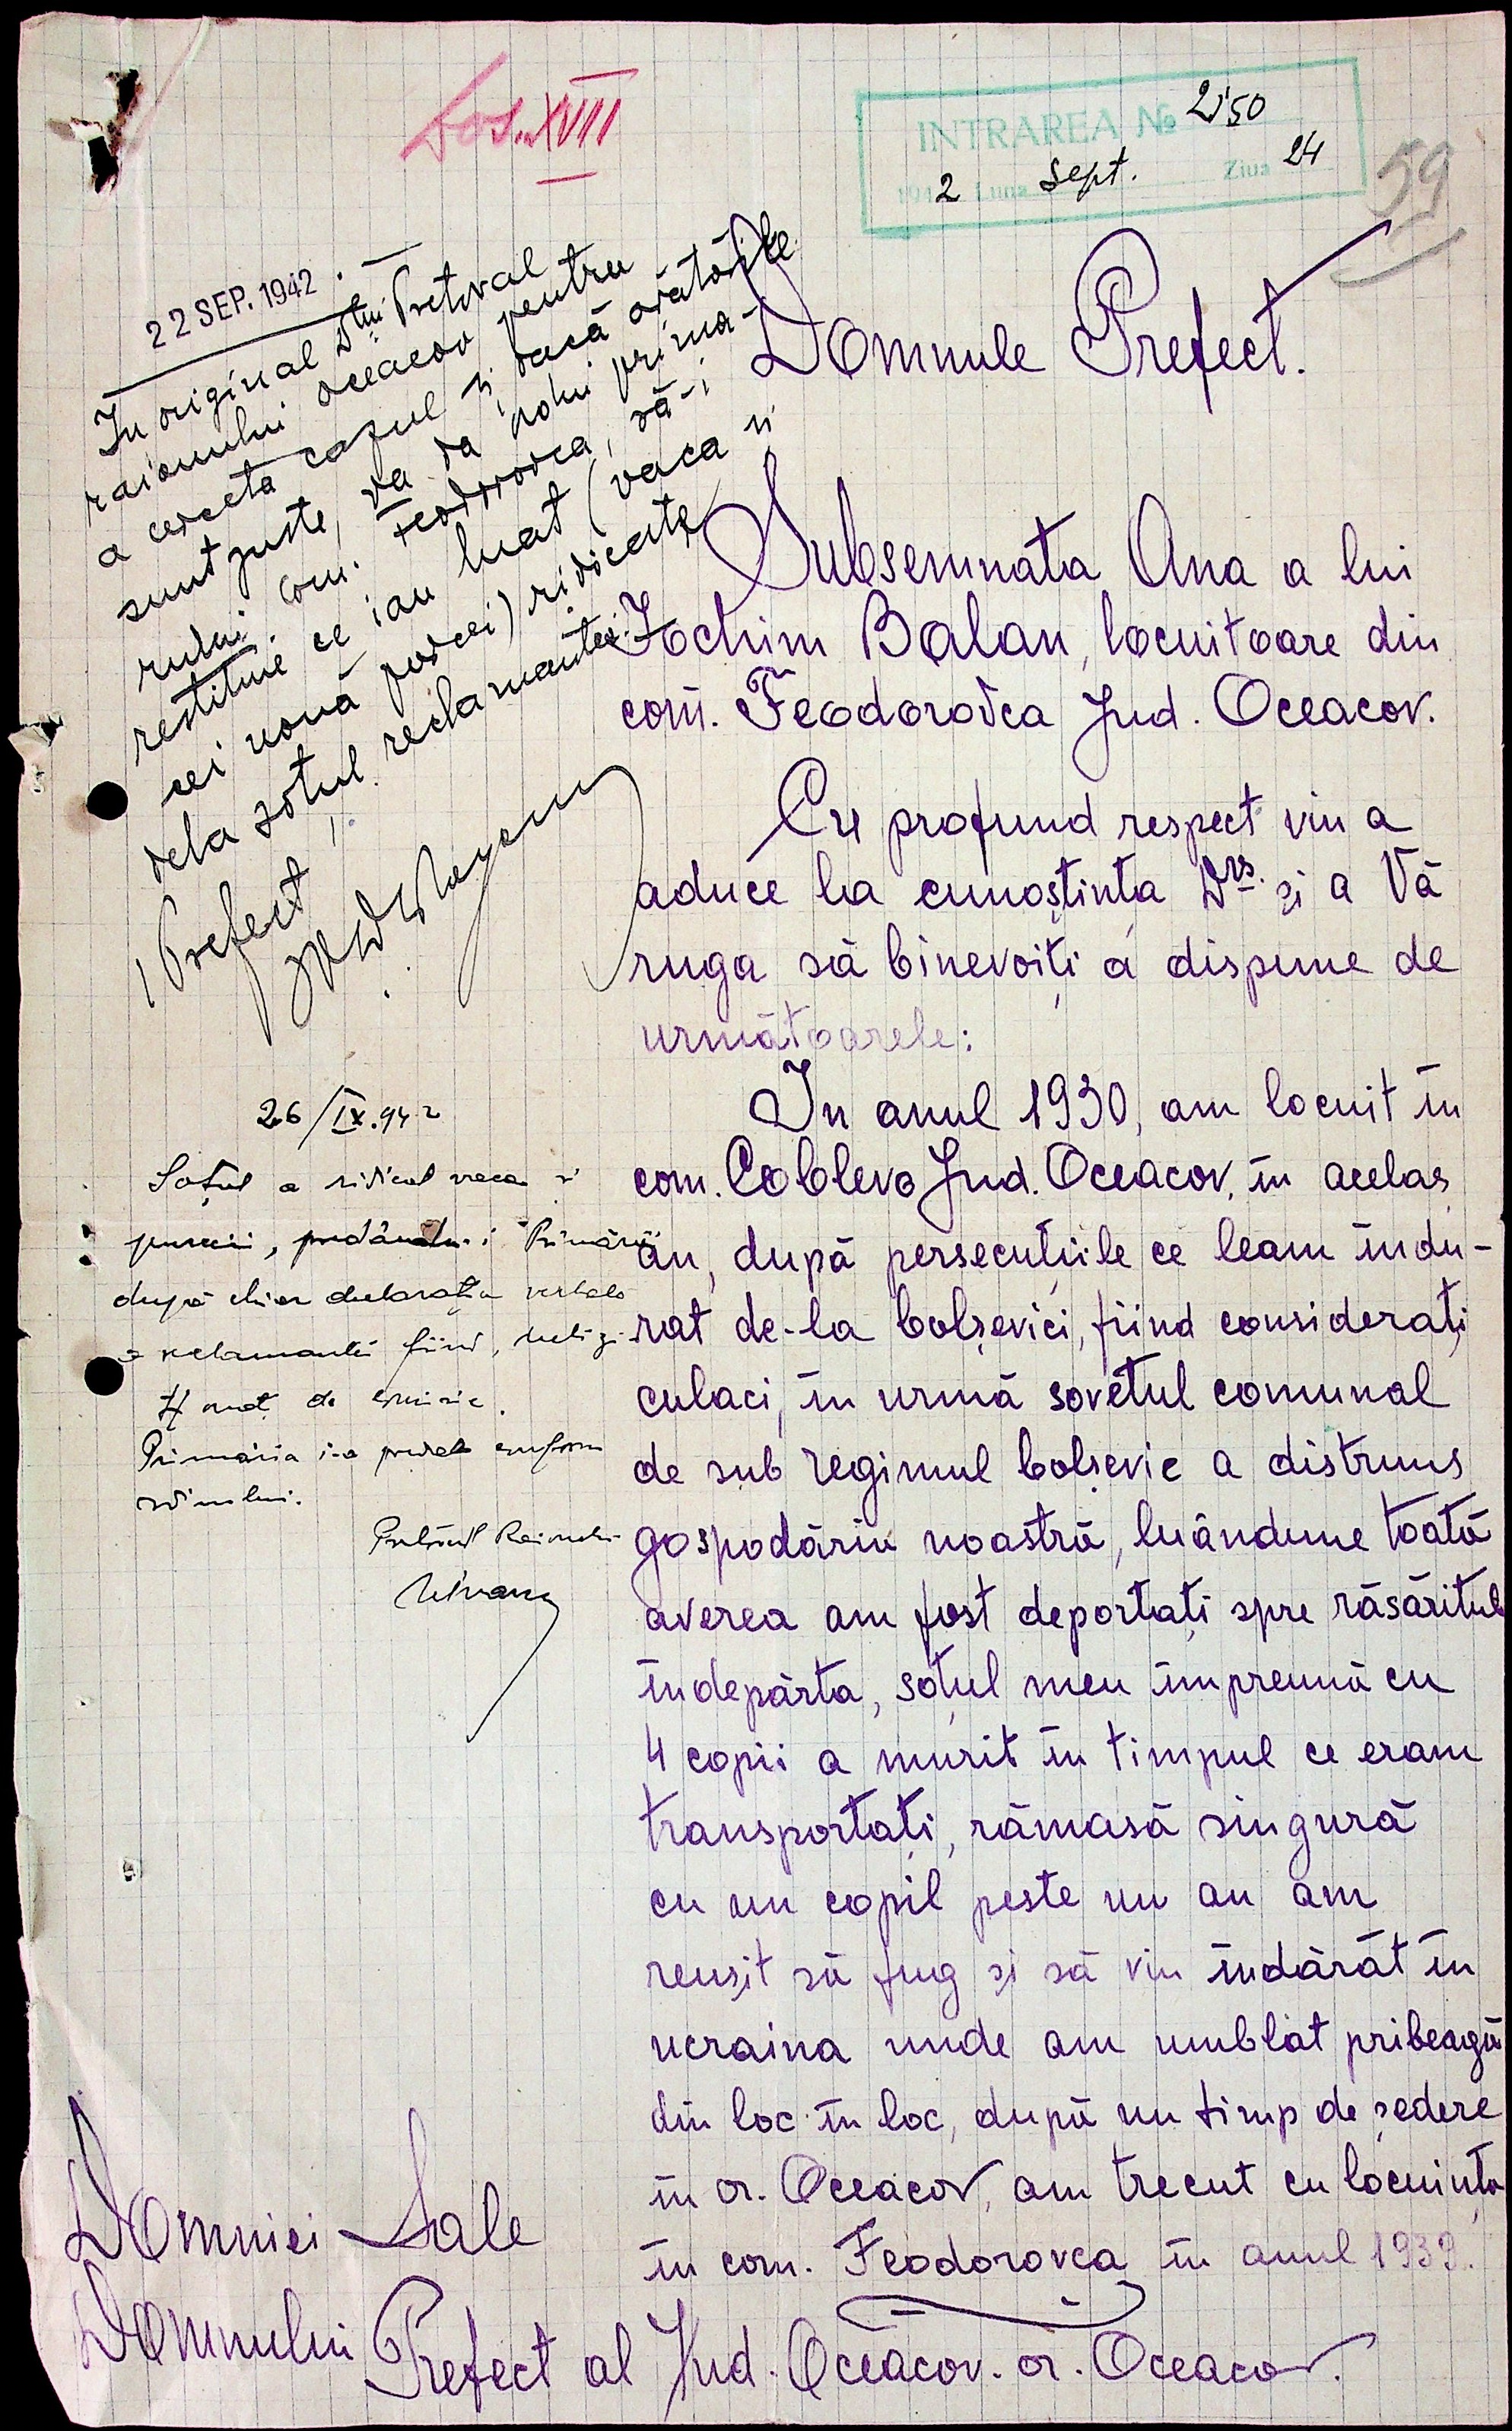 Dos. XVII
INTRAREA № 2150
1942 Luna Sept. Ziua 24
59
22 SEP. 1942
In original Dlui Pretor al
raionului Oceacov pentru
a cerceta cazul și dacă arătările
sunt juste, va da ordin prima-
rului com. Feodorovca, să-i
restitue ce iau luat (vaca și
cei nouă porcei) ridicate
dela soțul reclamantei.
Prefect
Domnule Prefect.
Subsemnata Ana a lui
Iochim Balan, locuitoare din
com. Feodorovca Jud. Oceacov.
Cu profund respect vin a
aduce la cunoștința Dvs. și a Vă
ruga să binevoiți a dispune de
următoarele:
In anul 1930, am locuit în
com. Coblevo Jud. Oceacov, în acelaș
an, după persecuțiile ce leam îndu-
rat de-la bolșevici, fiind considerați
culaci, în urmă sovetul comunal
de sub regimul bolșevic a distrus
gospodăria noastră, luândune toată
averea am fost deportați spre răsăritul
îndepărta, soțul meu împreună cu
4 copii a murit în timpul ce eram
transportați, rămasă singură
cu un copil peste un an am
reușit să fug și să vin îndărăt în
ucraina unde am umblat pribeagă
din loc în loc, după un timp de ședere
în or. Oceacov, am trecut cu locuința
în com. Feodorovca în anul 1939.
26/IX.942
Soțul a ridicat vaca și
purceii, predându-i Primăriei
după chiar declarația verbală
a reclamantei fiind,
de
Primăria i-a predat conform
ordinului.
Pretorul Raionului
Domniei Sale
Domnului Prefect al Jud. Oceacov. or. Oceacov.